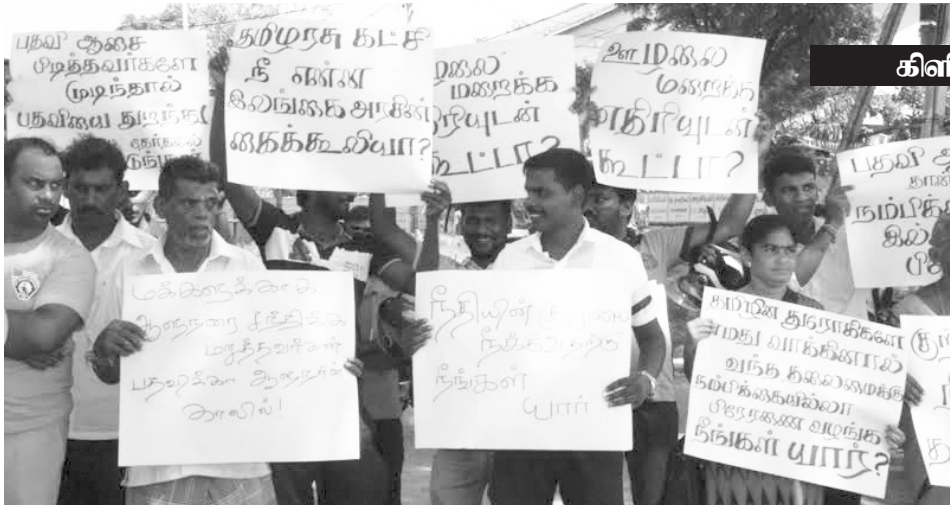 பதவி ஆசை
பிடித்தவர்களே
முடிந்தால்
பதவியை துறந்து
தமிழரசு கட்சி
நீ என்ன
இலங்கை அரசின்
கைக்கூலியா?
மறைக்க
கூட்டா?
ஊழலை
மறைக்க
எதிரியுடன்
கூட்டா?
கிளி
பதவி
மக்களுக்காக
ஆளுநரை சந்திக்க
மறுத்தவர்கள்
பதவிக்கா ஆளுநரின்
காலில்!
நீதியின் குரலை
நீங்கள்
யார்
தமிழின துரோகிகளே
எமது வாக்கினால்
வந்த தலைமைக்கு
நம்பிக்கையில்லா
பிரேரணை வழங்க
நீங்கள் யார்?